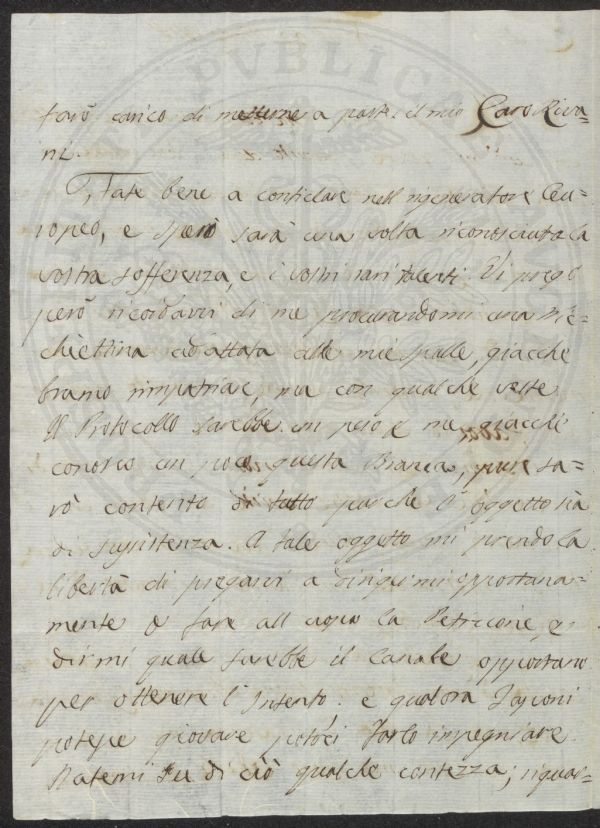 farò carico di metterne a parte il mio Caro Riva=
ni.
Fate bene a confidare nell rigeneratore Eu=
ropeo, e spero sarà una volta riconosciuta la
vostra sofferenza, e i vostri rari talenti. Vi prego
però ricordarvi di me procurandomi una nic=
chiettina addattata alle mie spalle, giacche
bramo rimpatriar, ma con qualche veste
Il Protocollo sarebbe un peso per me giacchè
conosco un poco questa Branca, pure sa=
rò contento di tutto purche l'oggetto sia
di sussistenza. A tale oggetto mi prendo la
libertà di pregarvi a dirigermi opportuna=
mente a fare all uopo la Petizione, e
dirmi quale sarebbe il Canale opportuno
per ottenere l'Intento. e qualora
potesse giovare farlo impegniare.
Datemi Su di ciò qualche contezza; riguar=
PVBLICA